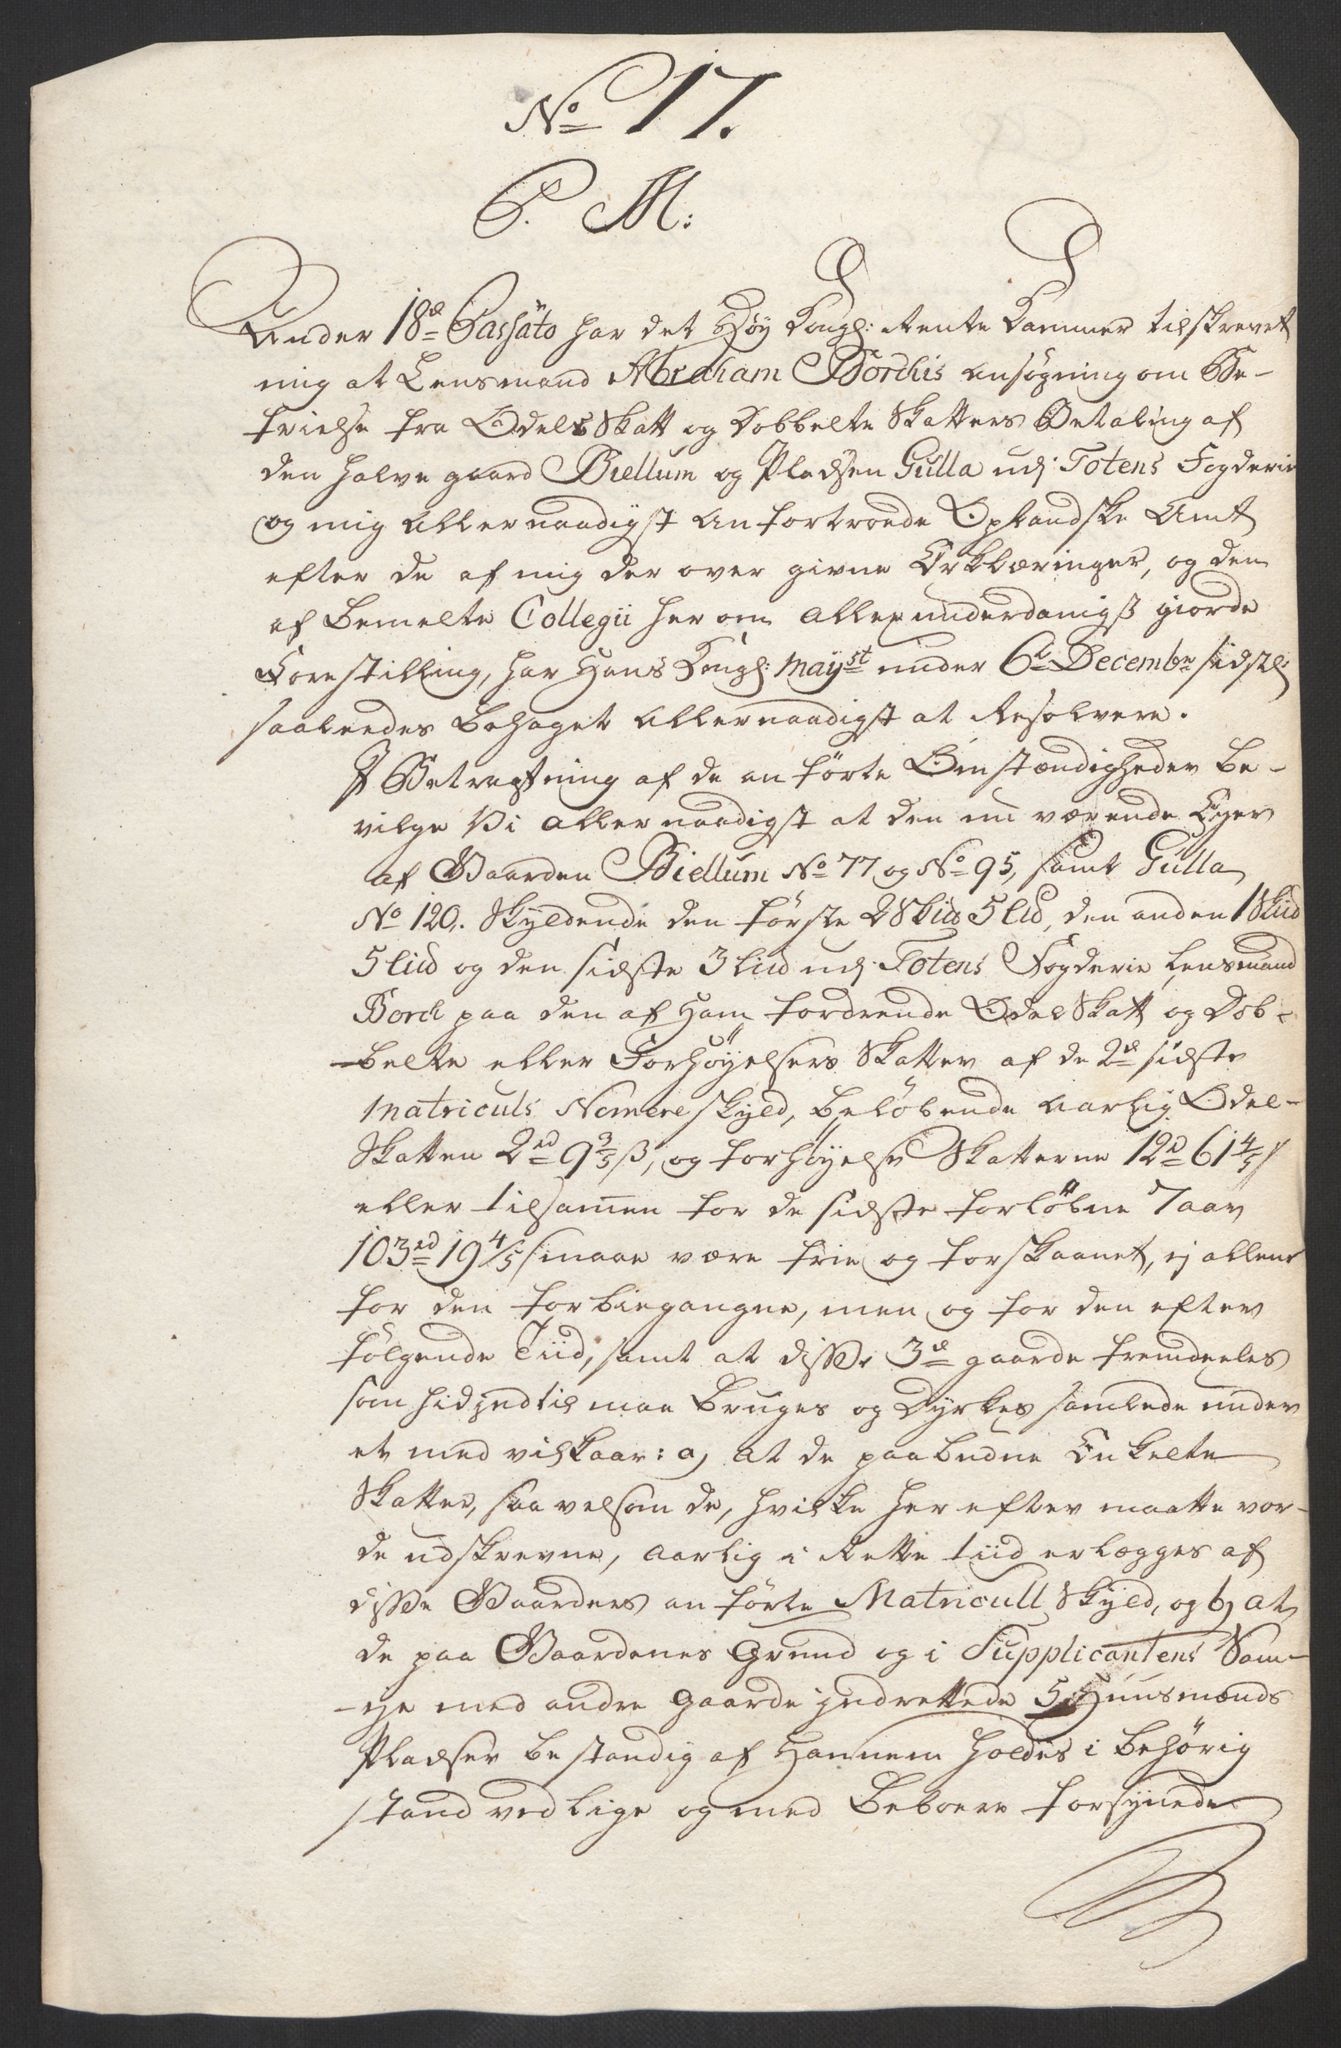 No 17.
P. M:
Under 18de Passato har det Høy Kongl: Rente Kammer tilskrevet
mig at Lensmand Abraham Borchs ansøgning om Be-
frielse fra Odels Skatt og Dobbelte Skatters Betaling af
den halve gaard Biellum og Pladsen Gulla udj Totens Fogderie
og mig Allernaadigst anfortroede Oplandske Amt
efter de af mig der over givne Erklæringer, og den
af bemelte Collegii her om allerunderdanigst giorde
Forestilling, har Hans Kongl: Mayst under 6te Decembr sidstl:
saaleedes behaget Allernaadigst at Resolvere.
J Betragtning af de anførte Omstændigheder be-
vilge Vi allernaadigst at den nu værende Eyer
af Gaarden Biellum No 77 og No 95, samt Gulla
No 120. Skyldende den første 2 Skiid 5 liid, den anden 1 Skiid
5 liid og den sidste 3 liid udj Totens Fogderie Lensmand
Borch paa den af Ham fordrende Odel Skatt og Dob-
belte eller Forhøyelsers Skatter af de 2de sidste
Matriculs Nomere skyld, beløbende aarlig Odel-
Skatten 2rd 9 3/5 ß, og forhøyelse Skatterne 12rd 61 4/5 ß
eller tilsamen for de sidste forløbne 7 aar
103rd 19 4/5 ß maae være frie og forskaanet, ej allene
for den forbiegangne, men og for den efter
følgende Tiid, samt at disse 3de gaarde fremdeeles
som hidjndtil maa bruges og dyrkes samlede under
et med vilkaar: a, at de paabudne Enkelte
Skatter, saa velsom de, hvilke her efter maatte vor-
de udskrevne, aarlig i Rette tiid erlægges af
disse Gaarders anførte Matricull Skyld, og b, at
de paa Gaardenes Grund og i Supplicantens Sam-
eje med andre gaarde jndrettede 5 Huusmænds
Pladser bestandig af Hannem holdes i behørig
stand vedlige og med Beboere forsynede